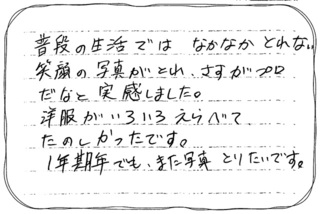 普段の生活では なかなか とれない
笑顔の写真がとれ、さすがプロ
だなと実感しました。
洋服がいろいろえらべて
たのしかったです。
1年期年でも、また写真とりたいです。